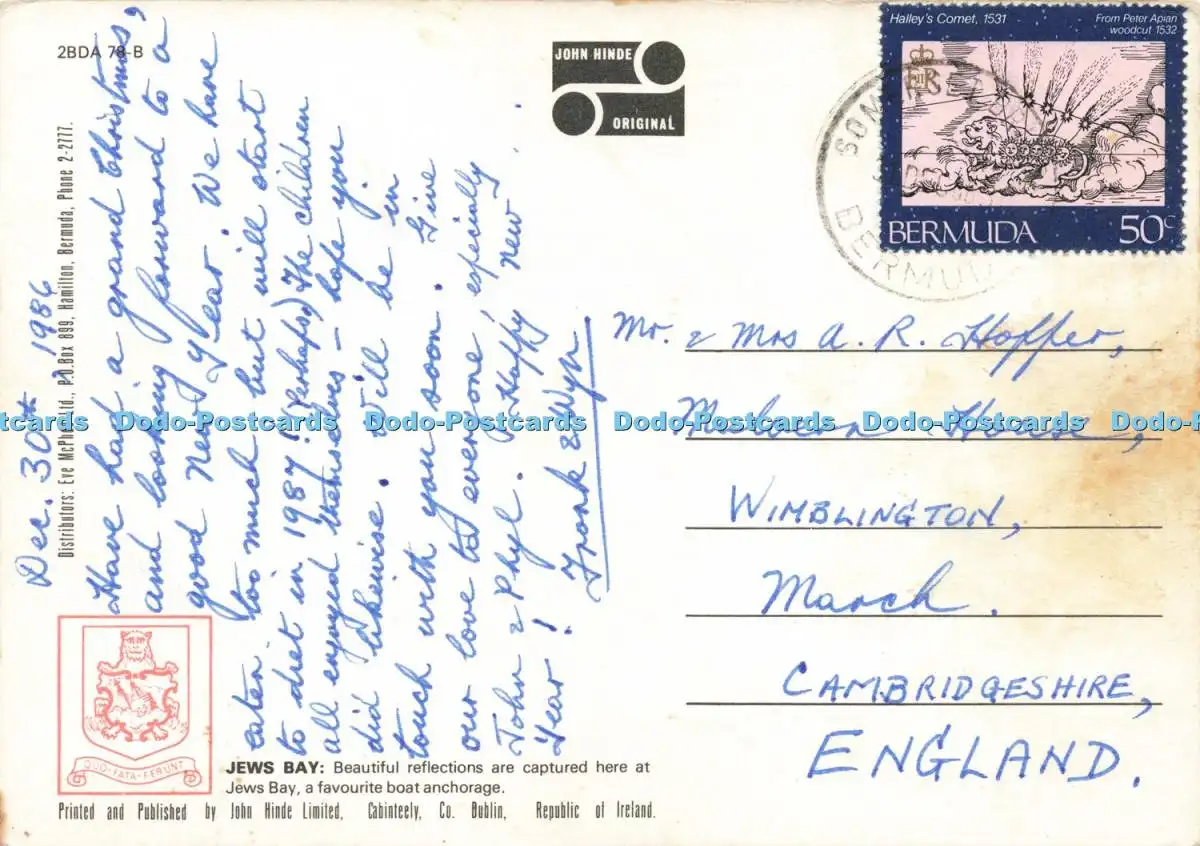 2BDA 78-B
Distributors: Eve McPhee Ltd., P.O.Box 899, Hamilton, Bermuda, Phone 2-2777.
Dec. 30th, 1986
Have had a grand Christmas,
and looking forward to a
good New Year. We have
eaten too much but will start
to diet in 1987! (Perhaps) The children
all enjoyed themselves - hope you
did likewise. Will be in
touch with you soon. Give
our love to everyone, especially
John & Phyl. Happy New
Year! Frank & Wyn
JOHN HINDE
ORIGINAL
Halley's Comet, 1531
From Peter Apian
woodcut 1532
EIIR
BERMUDA 50c
BERMUDA
Mr. & Mrs A. R. Hopper,
House,
WIMBLINGTON,
March.
CAMBRIDGESHIRE,
ENGLAND.
Dodo-Postcards Dodo-Postcards Dodo-Postcards Dodo-Postcards Dodo-Postcards
QUO FATA FERUNT
JEWS BAY: Beautiful reflections are captured here at
Jews Bay, a favourite boat anchorage.
Printed and Published by John Hinde Limited, Cabinteely, Co. Dublin, Republic of Ireland.